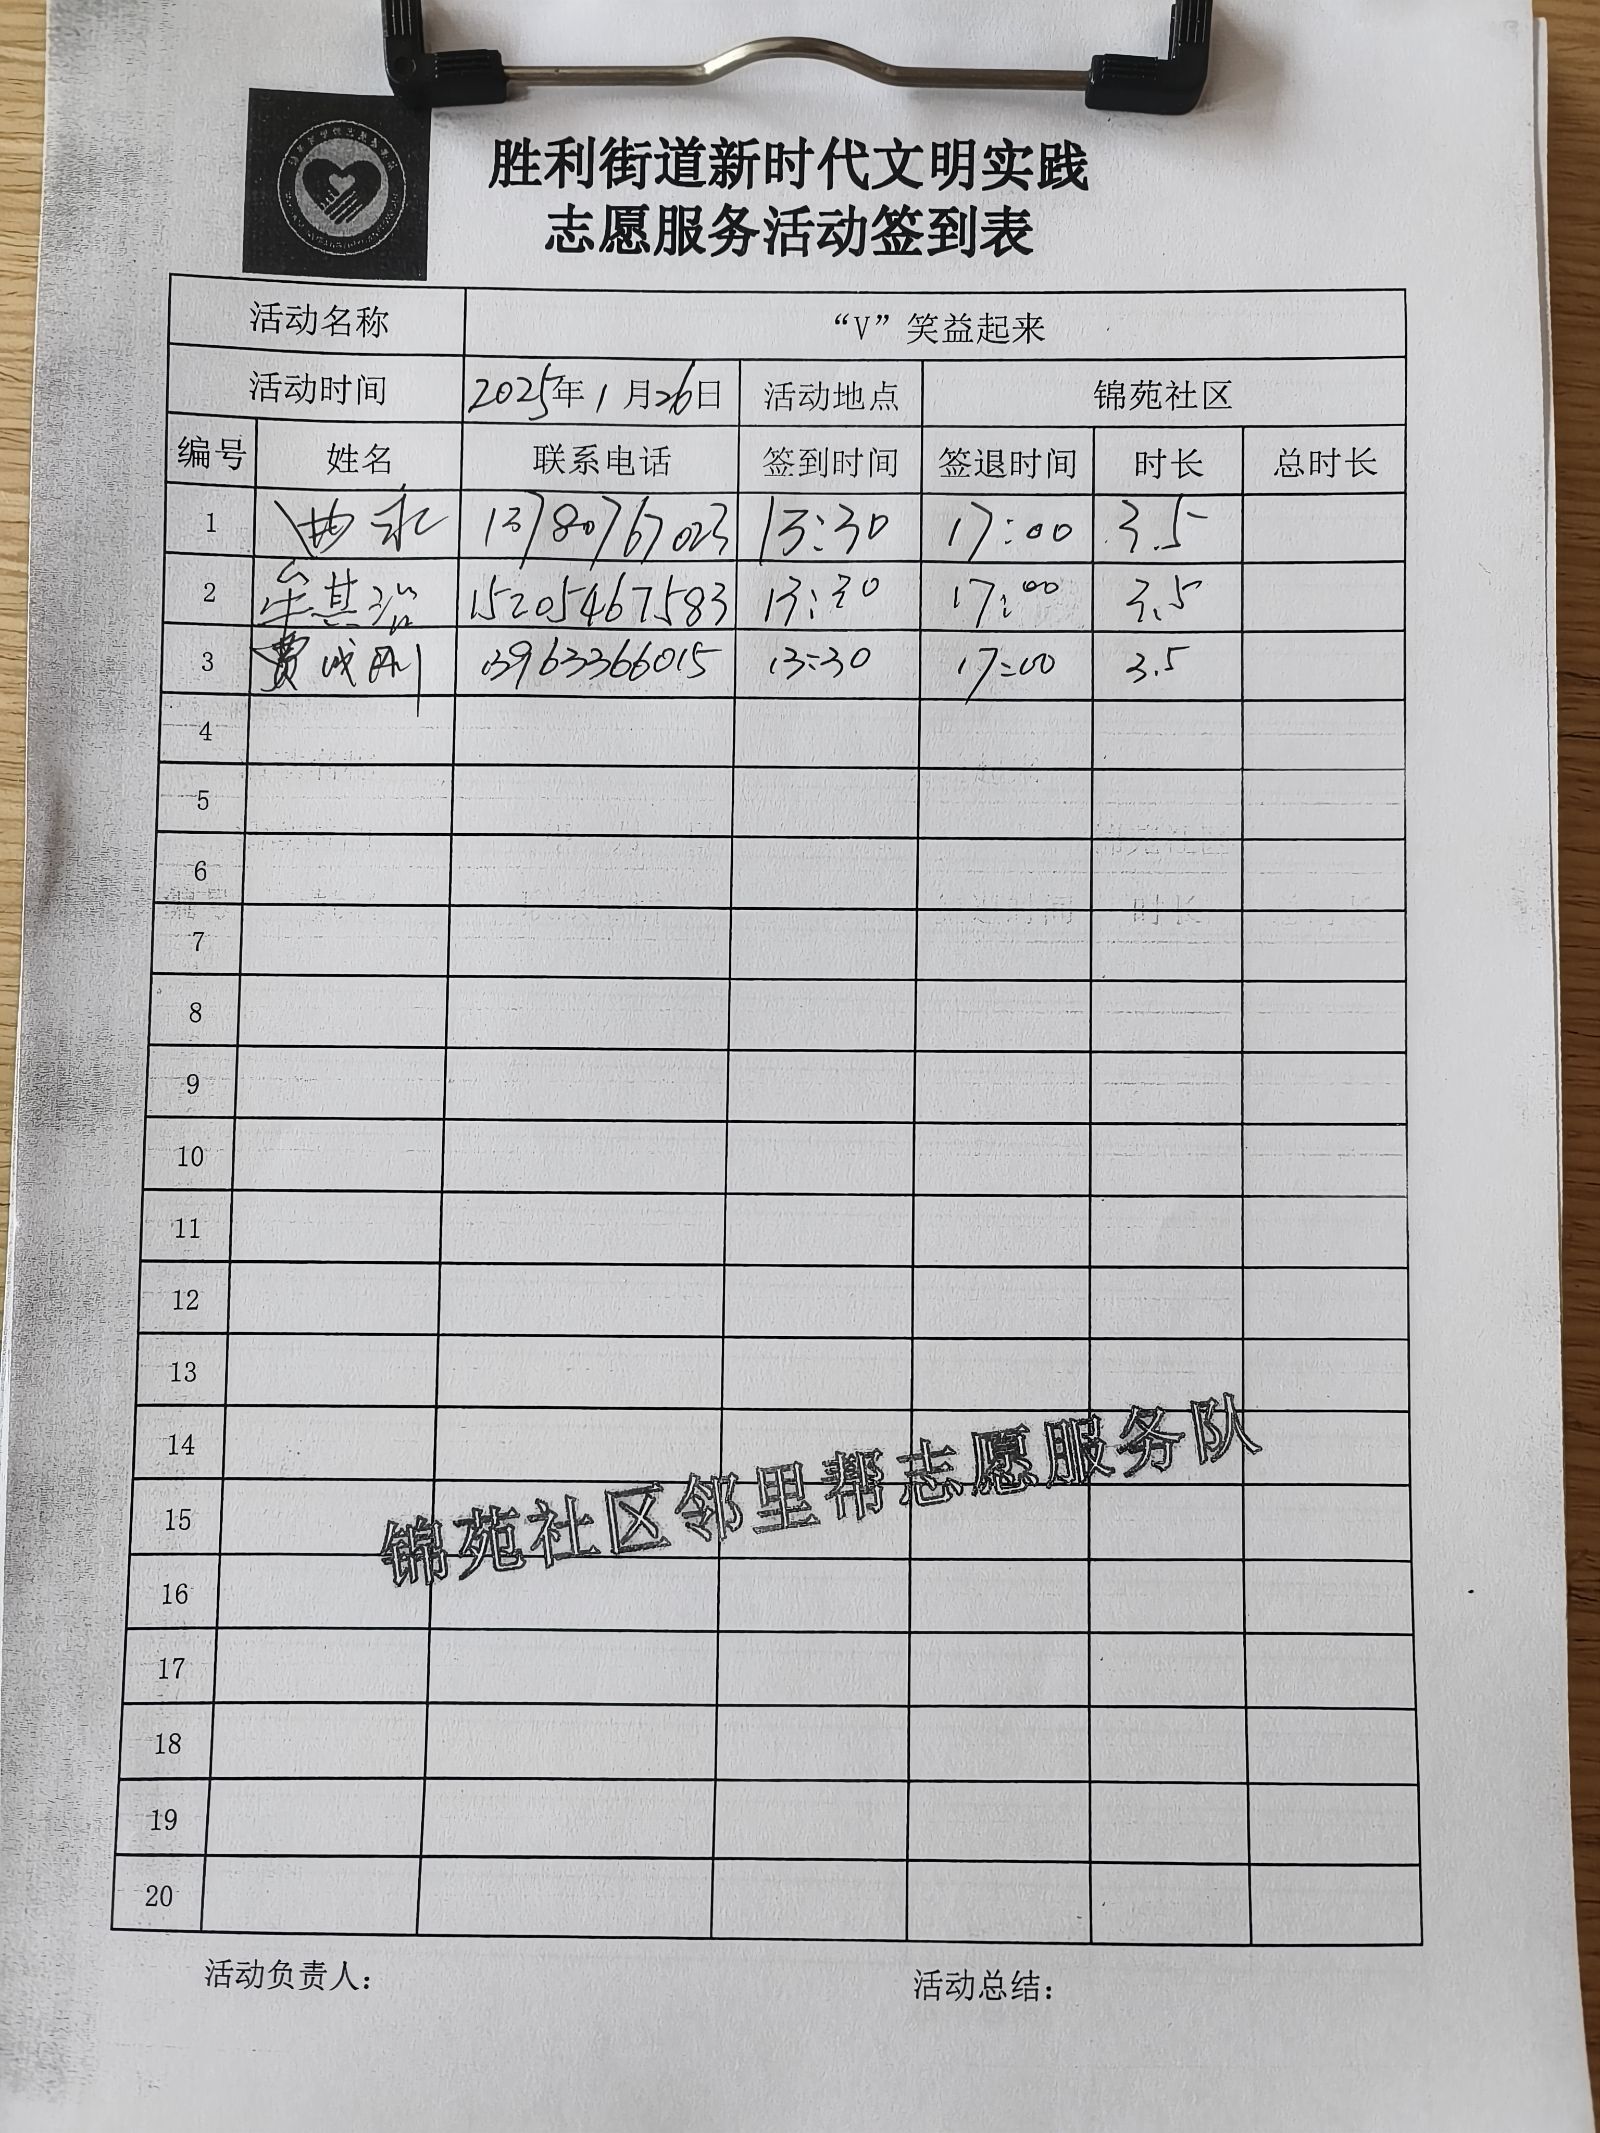 胜利街道新时代文明实践
志愿服务活动签到表
活动名称 “V”笑益起来
活动时间 2025年1月26日 活动地点 锦苑社区
编号 姓名 联系电话 签到时间 签退时间 时长 总时长
1 曲永 13780767023 13:30 17:00 3.5
2 牟其治 15205467583 13:30 17:00 3.5
3 费成刚 13963366015 13:30 17:00 3.5
4
5
6
7
8
9
10
11
12
13
14
15
16
17
18
19
20
锦苑社区邻里帮志愿服务队
活动负责人： 活动总结：